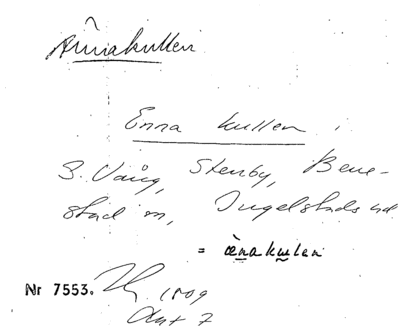 Ännakullen
Enna kullen i
S. Vång, Stenby, Bene-
stad sn, Ingelstads hd
= ænakulen
Nr 7553.
1809
Akt 7